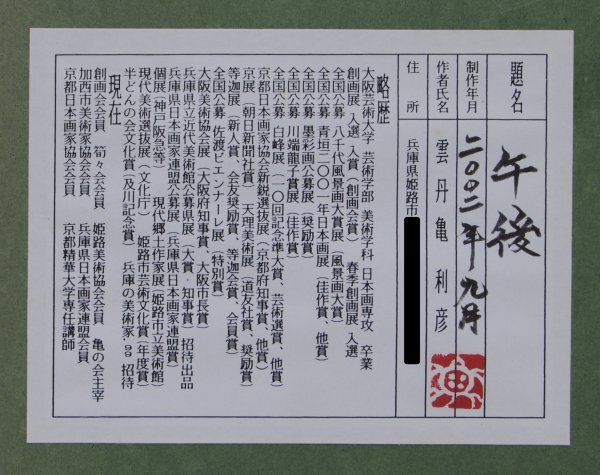 題名 午後
制作年月 二〇〇二年九月
作者氏名 雲丹亀利彦
住所 兵庫県姫路市
略歴
大阪芸術大学 芸術学部 美術学科 日本画専攻 卒業
創画展 入選、入賞（創画会賞） 春季創画展 入選
全国公募 八千代風景画大賞展（風景画大賞）
全国公募 青垣二〇〇一年日本画展（佳作賞、他賞）
全国公募 墨彩画公募展（奨励賞）
全国公募 川端龍子賞展（佳作賞）
全国公募 白峰展（一〇回記念準大賞、芸術選賞、他賞）
京都日本画家協会新鋭選抜展（京都府知事賞、他賞）
京展（朝日新聞社賞） 天理美術展（道友社賞、奨励賞）
等迦展（新人賞、会友奨励賞、等迦会賞、会員賞）
全国公募 佐渡ビエンナーレ展（特別賞）
大阪美術協会展（大阪府知事賞、大阪市長賞）
兵庫県立近代美術館公募県展（大賞・知事賞）招待出品
兵庫県日本画家連盟公募展（兵庫県日本画家連盟賞）
個展（神戸阪急等） 現代郷土作家展（姫路市立美術館）
現代美術選抜展（文化庁） 姫路市芸術文化賞（年度賞）
半どんの会文化賞（及川記念賞） 兵庫の美術家・99 招待
現在
創画会会員 筍々会会員 姫路美術協会会員 亀の会主宰
加西市美術家協会会員 兵庫県日本画家連盟会員
京都日本画家協会会員 京都精華大学専任講師